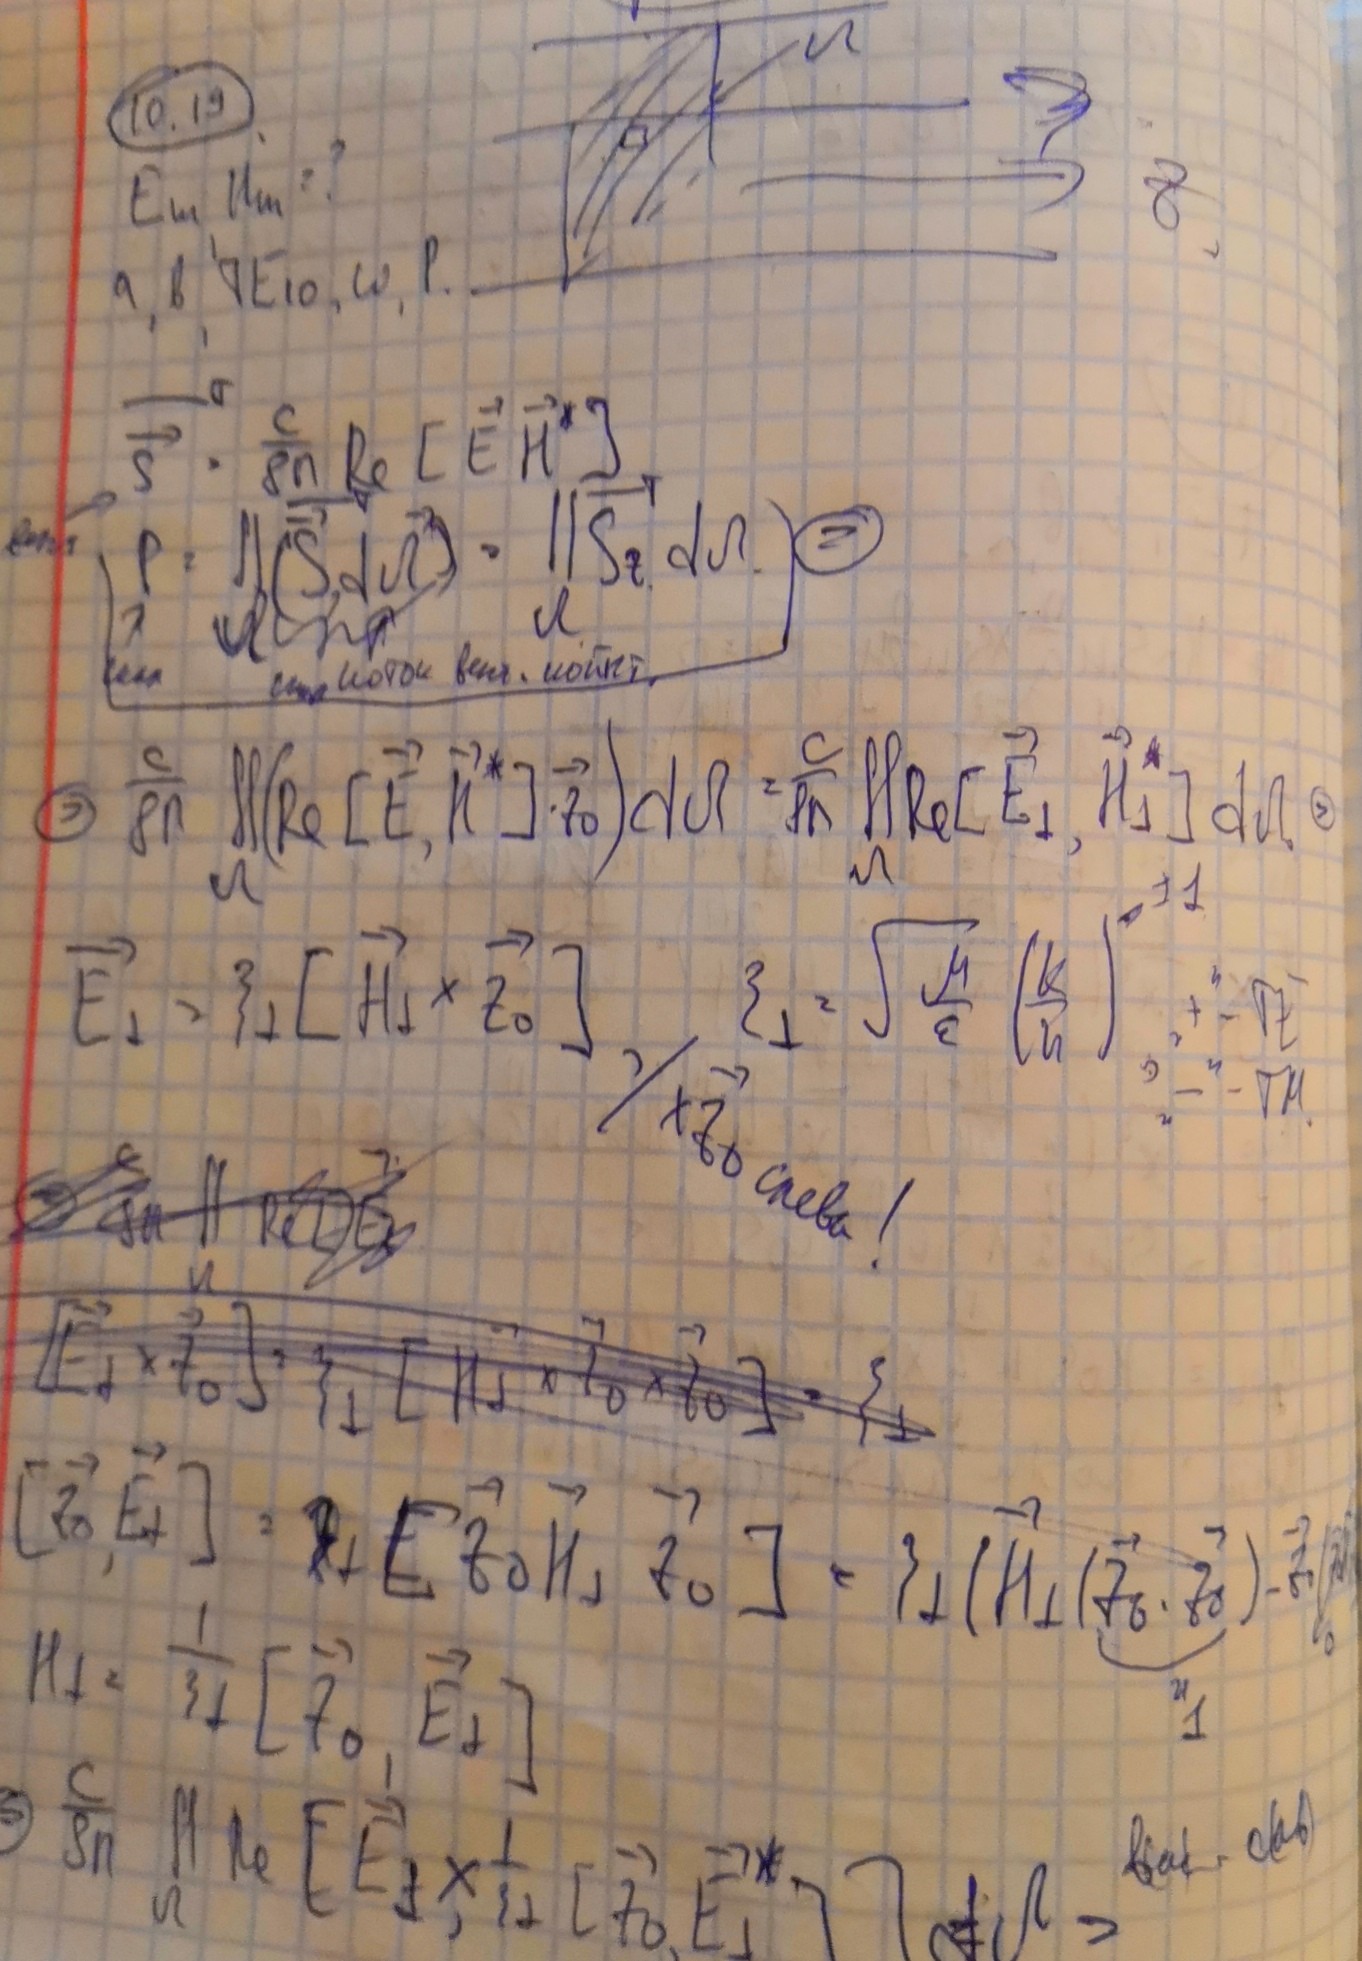 Ω
10.19
E_m, H_m = ?
a, b, TE₁₀, ω, P.
\overline{\vec{S}}^T = \frac{c}{8π} Re [\vec{E} \vec{H}^*]
P = ∬_Ω (\overline{\vec{S}}^T, d\vec{Ω}) = ∬_Ω \overline{S_z}^T dΩ. ⊜
поток вект. Пойнт.
⊜ \frac{c}{8π} ∬_Ω (Re [\vec{E}, \vec{H}^*] · \vec{z}_0) dΩ = \frac{c}{8π} ∬_Ω Re [\vec{E}_⊥, \vec{H}_⊥^*] dΩ ⊜
\vec{E}_⊥ = ξ_⊥ [\vec{H}_⊥ × \vec{z}_0], ξ_⊥ = \sqrt{\frac{μ}{ε}} (\frac{k}{h})^{±1} "+" - TE
"-" - TM.
/ × \vec{z}_0 слева!
[\vec{E}_⊥ × \vec{z}_0] = ξ_⊥ [\vec{H}_⊥ × \vec{z}_0 × \vec{z}_0] = ξ_⊥
[\vec{z}_0, \vec{E}_⊥] = ξ_⊥ [\vec{z}_0 \vec{H}_⊥ \vec{z}_0] = ξ_⊥ (\vec{H}_⊥ (\vec{z}_0 · \vec{z}_0) - \vec{z}_0
H_⊥ = \frac{1}{ξ_⊥} [\vec{z}_0, \vec{E}_⊥]
"1
⊜ \frac{c}{8π} ∬_Ω Re [\vec{E}_⊥, × \frac{1}{ξ_⊥} [\vec{z}_0, \vec{E}_⊥^*]] dΩ =